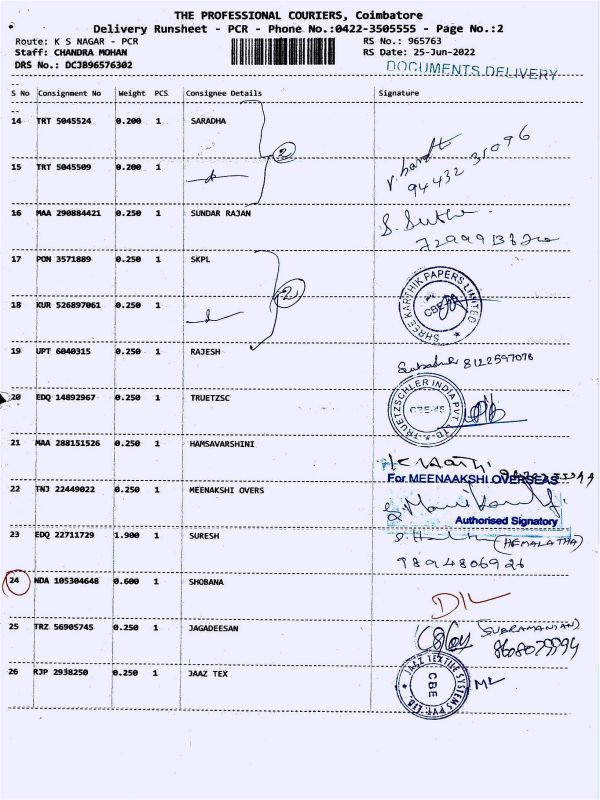 THE PROFESSIONAL COURIERS, Coimbatore
Delivery Runsheet - PCR - Phone No.:0422-3505555 - Page No.:2
Route: K S NAGAR - PCR
RS No.: 965763
Staff: CHANDRA MOHAN
RS Date: 25-Jun-2022
DRS No.: DCJB96576302
DOCUMENTS DELIVERY
S No Consignment No Weight PCS Consignee Details Signature
14 TRT 5045524 0.200 1 SARADHA
2
15 TRT 5045509 0.200 1
94432 31096
16 MAA 290884421 0.250 1 SUNDAR RAJAN
17 PON 3571889 0.250 1 SKPL
2
SHREE KARTHIK PAPERS LIMITED
CBE
18 KUR 526897061 0.250 1
19 UPT 6040315 0.250 1 RAJESH
8122597076
20 EDQ 14892967 0.250 1 TRUETZSC
TRUETZSCHLER INDIA PVT. LTD.
21 MAA 288151526 0.250 1 HAMSAVARSHINI
22 TNJ 22449022 0.250 1 MEENAKSHI OVERS
For MEENAAKSHI OVERSEAS
Authorised Signatory
23 EDQ 22711729 1.900 1 SURESH
(HEMALATHA)
9894806926
24 NDA 105304648 0.600 1 SHOBANA
D/L
25 TRZ 56905745 0.250 1 JAGADEESAN
(SUBRAMANIAN)
26 RJP 2938250 0.250 1 JAAZ TEX
JAAZ TEXTILE SYSTEMS PVT. LTD.
CBE